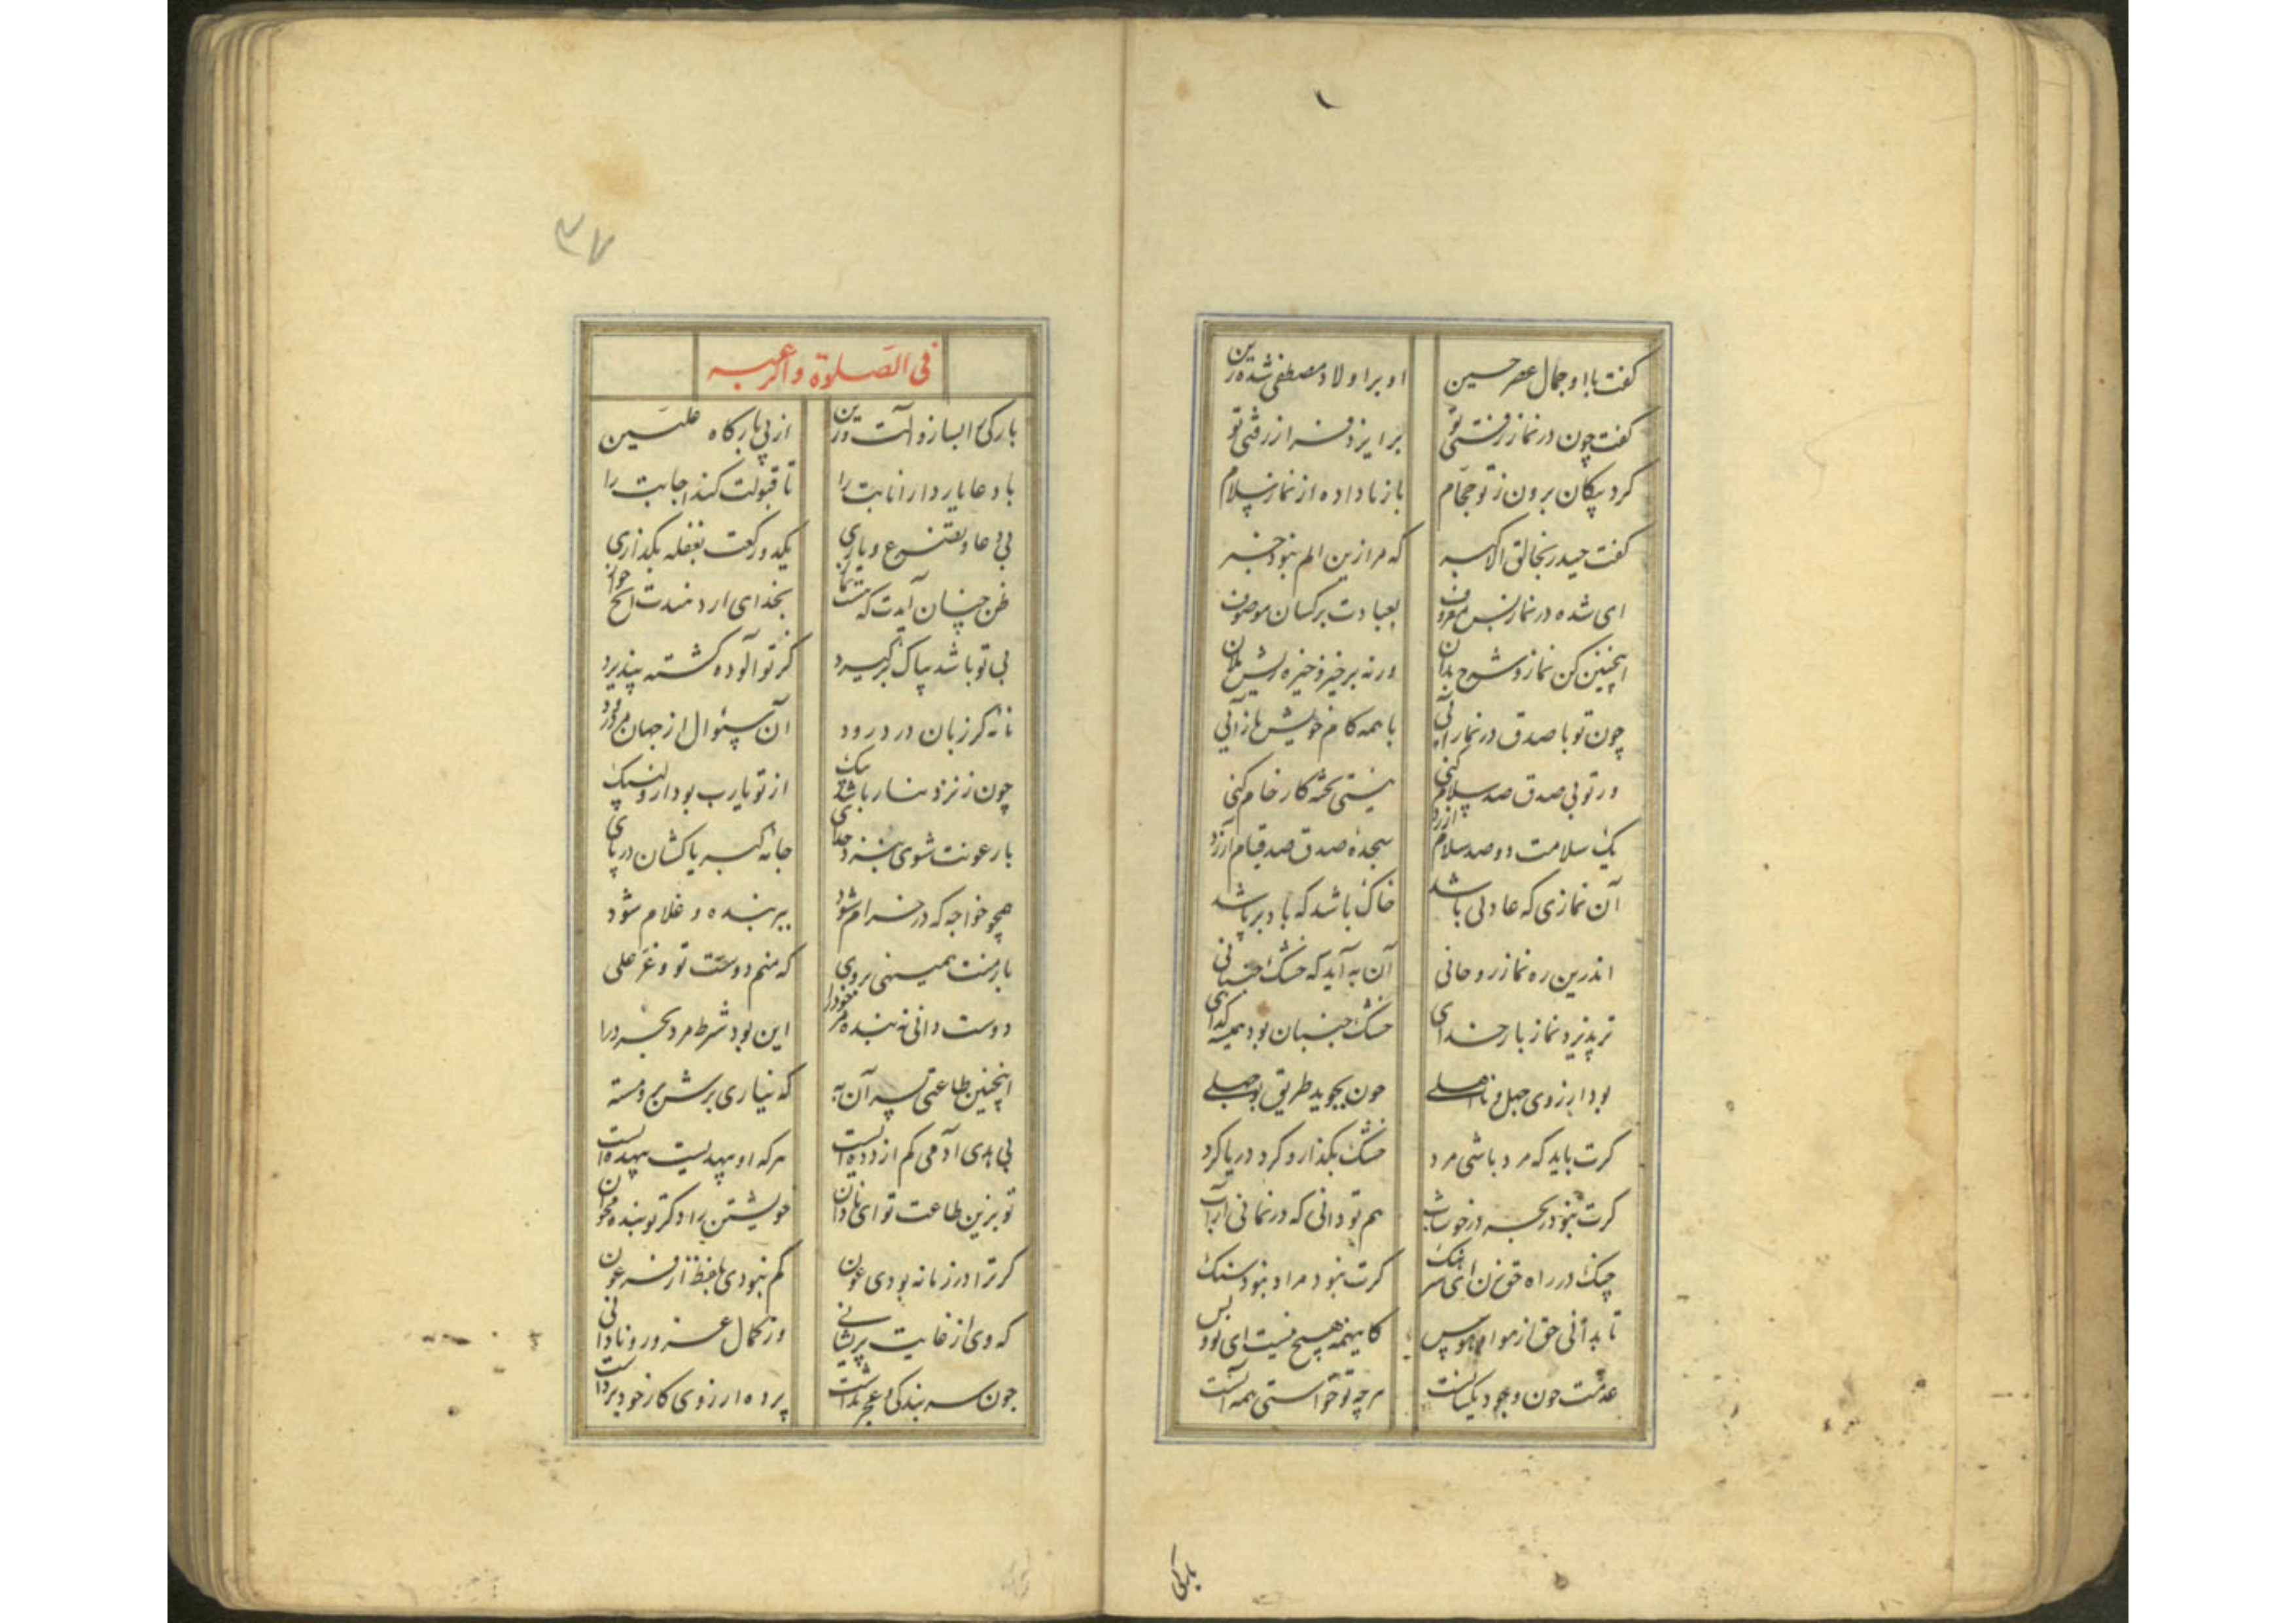 ۱
گفت با او جمال عصر حسین
او بر اولاد مصطفی شده زین
گفت چون در نماز رفتی تو
بر ایزد فراز رفتی تو
کرد پیکان برون ز تو حجام
باز ناداده از نماز سلام
گفت حیدر بخالق الاکبر
که مرا زین الم نبود خبر
ای شده در نماز بس معروف
بعبادت بر کسان موصوف
اینچنین کن نماز و شرح بدان
ورنه برخیز و خیره ریش ملان
چون تو با صدق در نماز آیی
با همه کام خویش باز آیی
ور تو بی صدق صد سلام کنی
نیستی پخته کار خام کنی
یک سلامت دو صد سلام ارزد
سجده صدق صد قیام ارزد
آن نمازی که عادتی باشد
خاک باشد که باد بر پاشد
اندرین ره نماز روحانی
آن به آید که خشک جنبانی
نپذیرد نماز بار خدای
خشک جنبان بود همیشه گدای
بود از روی جهل و نا اهلی
چون بجوید طریق بوجهلی
کرت باید که مرد باشی مرد
خشک بگذار و گرد دریا گرد
کرت نبود در بحر در خوشاب
هم تو دانی که در نمانی از آب
چنگ در راه حق بزن ای شنگ
کرت نبود مراد نبود سنگ
تا بدانی حق از هوا و هوس
کاینهمه هیچ نیست ای بس
عدمت چون وجود یکسانست
هر چه تو خواستی همه آنست
بارکی
۳۷
فی الصلوة و
بارکی را بساز و آلت و زین
از پی بارگاه علیین
با دعا یار دار انابت را
تا قبولت کند اجابت را
بی دعا و تضرع و یاری
یکدو رکعت بغفله بگذاری
ظن چنان آیدت که هست نماز
بخدای ار دهندت ایچ جواز
بی تو باشد پاک برگیرد
گر تو آلوده گشته پذیرد
نامه کز زبان درد رود
آن سئوال از جهان مرد رود
چون ز نزد نیاز باشد پیک
از تو یارب بود ازو لبیک
با رعونت شوی بنزد خدای
جامه کبر پا کشان در پای
همچو خواجه که در خرام شود
ببر بنده و غلام شود
بار منت همی نهی بروی
که منم دوست تو و غر علی
دوست دانی نه بنده مر خود را
این بود شرط مرد بخرد را
اینچنین طاعتی پسر آن به
که نیاری برش برو مسته
بی بدی آدمی کم از دده است
هر که او بیهده است بیهده است
تو بزین طاعت تو ای نادان
خویشتن را دگر تو بنده مخوان
گر ترا در زمانه بودی عون
کم نبودی بلفظ از فرعون
که وی از غایت پریشانی
وز کمال غرور و نادانی
چون سر بندگی و عجز نداشت
پرده از روی کار خود برداشت